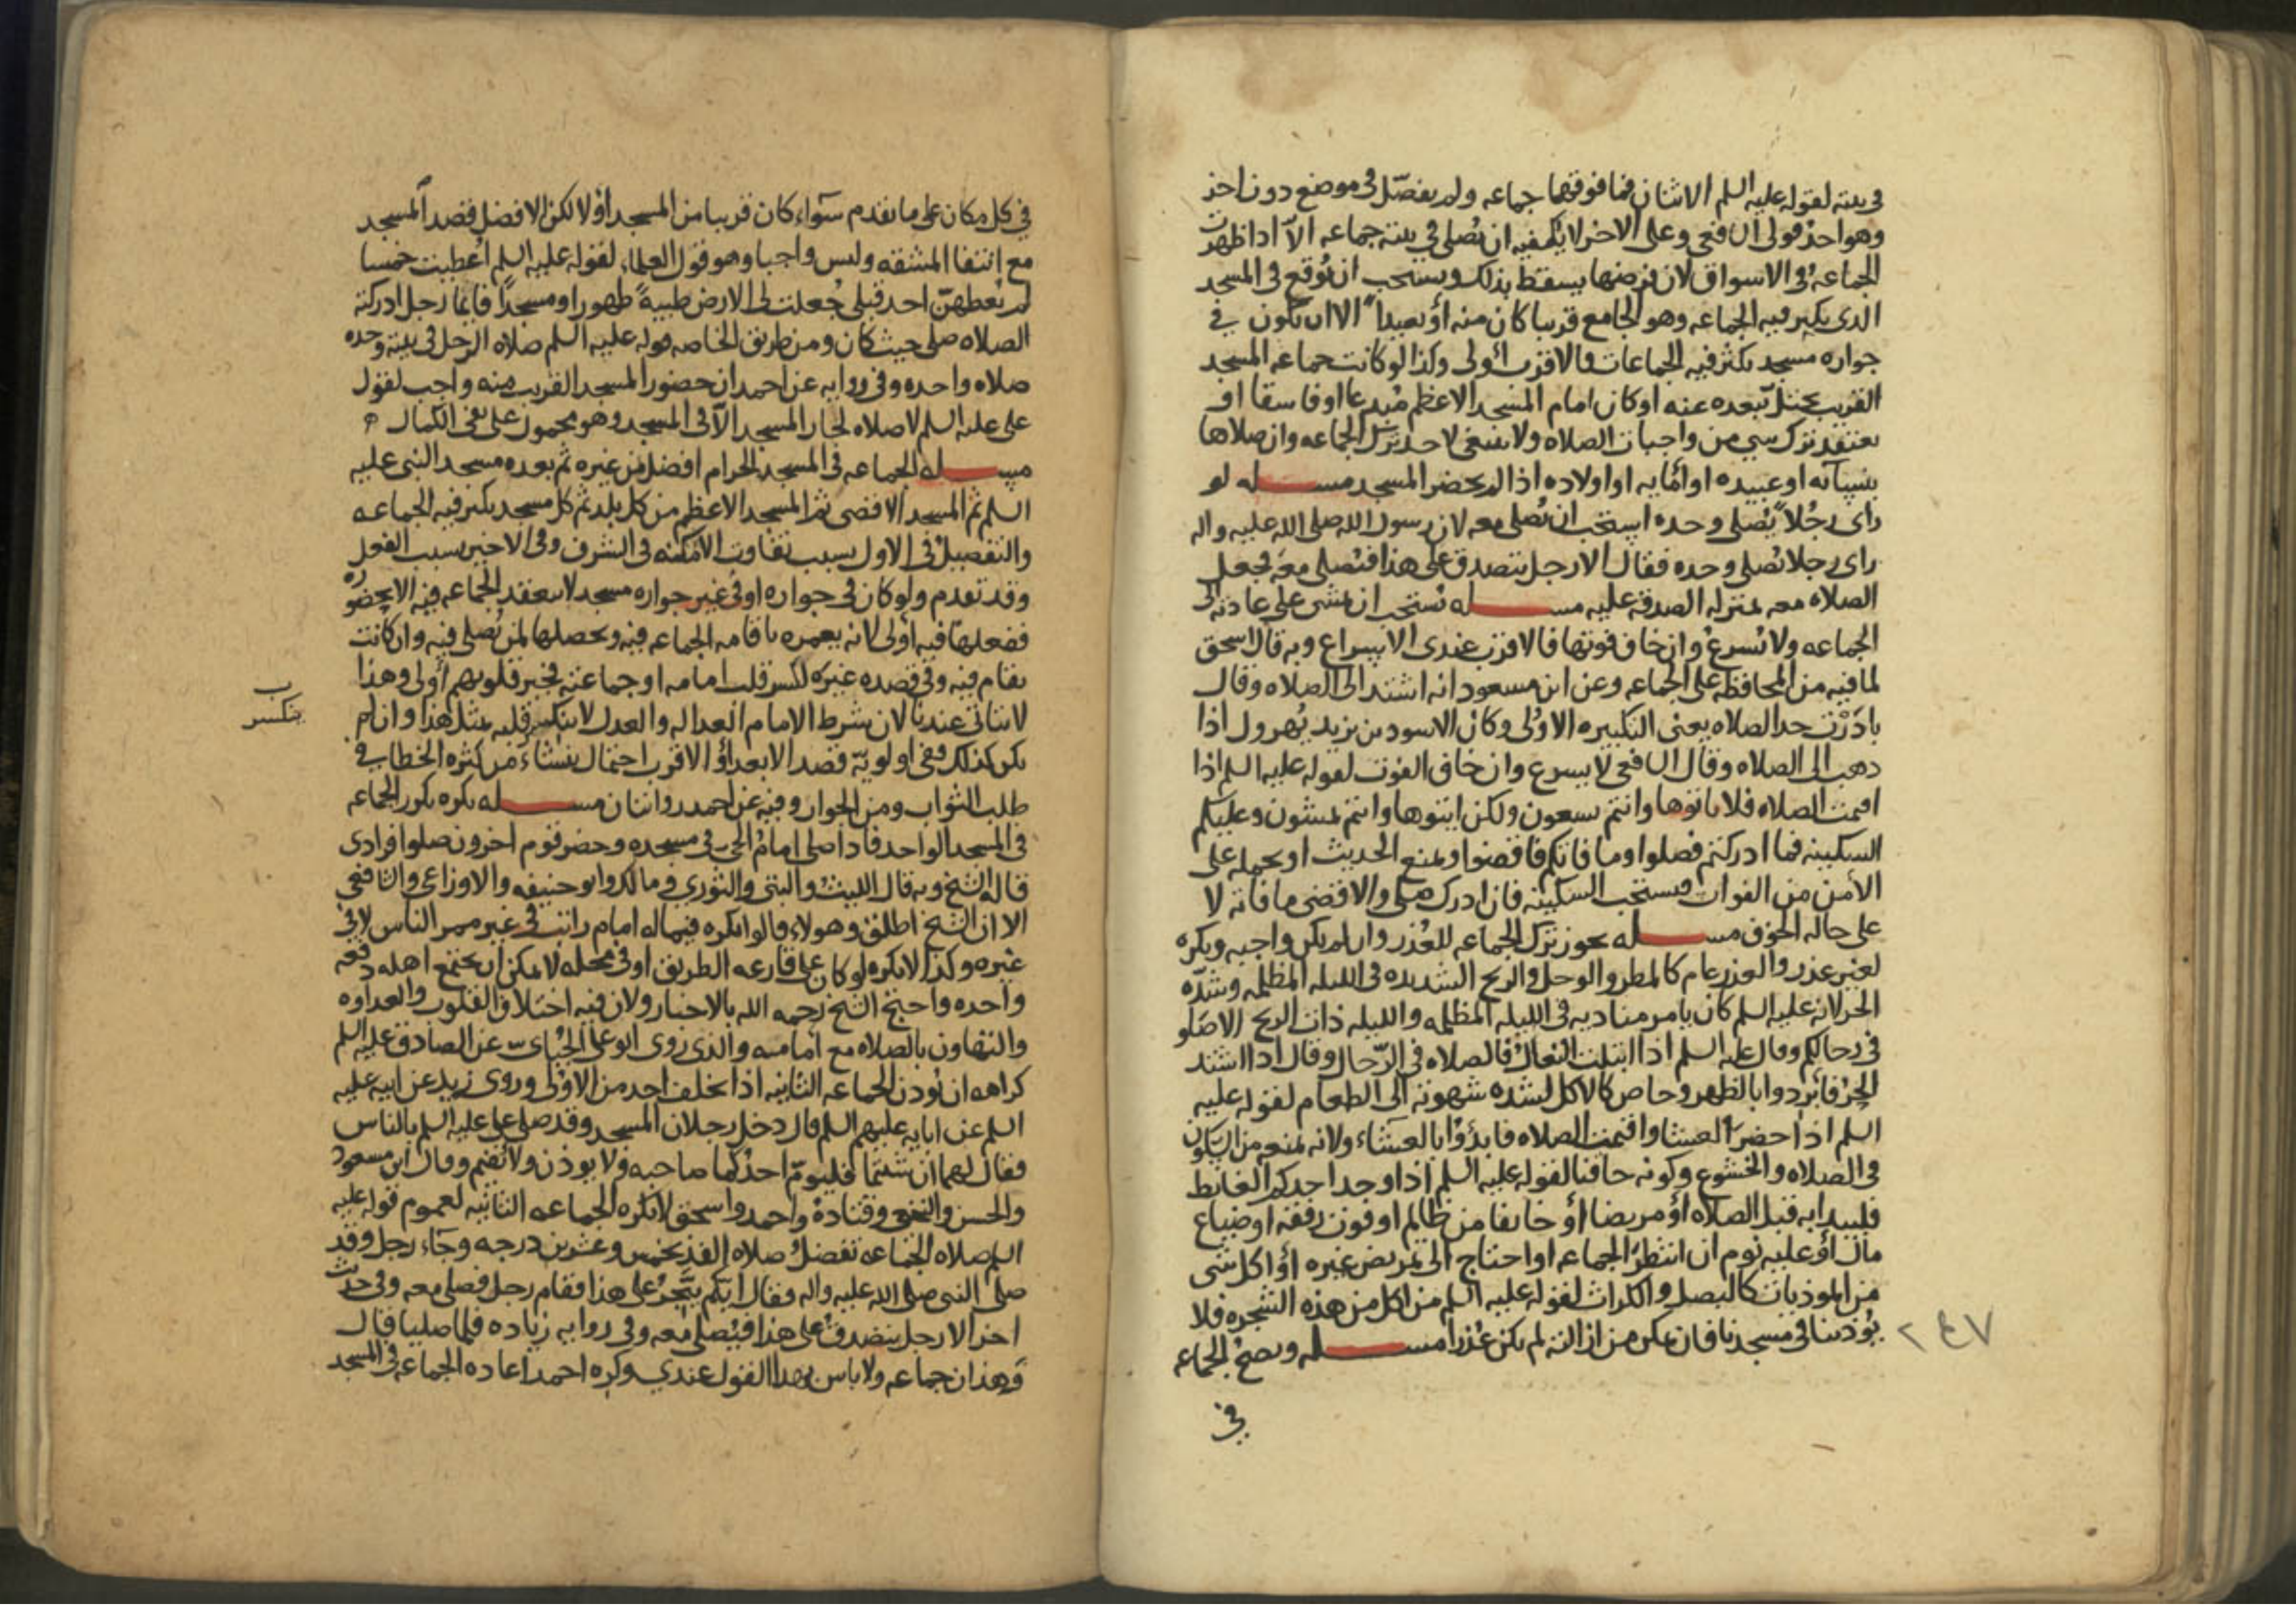 في بيته لقوله عليه السلم الاثنان فما فوقهما جماعه ولم يفصّل في موضع دون اخر
وهو احد قولي الشافعي وعلى الاخر لا يكفيه ان يصلي في بيته جماعه الّا اذا ظهرت
الجماعه في الاسواق لان فرضها يسقط بذلك ويستحب ان تُوقع في المسجد
الذي يكثر فيه الجماعه وهو الجامع قريبا كان منه أو بعيداً الا ان تكون في
جواره مسجد يكثر فيه الجماعات فالاقرب أولى وكذا لو كانت جماعه المسجد
القريب تختل ببعده عنه او كان امام المسجد الاعظم مبدعا او فاسقا او
يعتقد ترك شي من واجبات الصلاه ولا ينبغي لاحد ترك الجماعه وان صلاها
بنسائه او عبيده او أمايه او اولاده اذا لم يحضر المسجد مسـله لو
راى رجُلاً يُصلي وحده استحب ان يُصلي معه لان رسول الله صلى الله عليه واله
راى رجلا يصلي وحده فقال الا رجل يتصدق على هذا فيُصلي معَه فجعل
الصلاه معه بمنزله الصدقه عليه مسـله يُستحب ان يمشي على عادته الى
الجماعه ولا يُسرع وان خاف فوتها فالاقرب عندي الاسراع وبه قال اسحق
لما فيه من المحافظه على الجماعه وعن ابن مسعود انه اشتد الى الصلاه وقال
بادَرْت حد الصلاه يعني التكبيره الاولى وكان الاسود بن يزيد يُهرول اذا
ذهب الى الصلاه وقال الشافعي لا يسرع وان خاف الفوت لقوله عليه السلم اذا
اقيمت الصلاه فلا ياتوها وانتم تسعون ولكن ايتوها وانتم تمشون وعليكم
السكينه فما ادركتم فصلوا وما فاتكم فاقضوا ونمنع الحديث او نحمله على
الأمن من الفوات ويستحب السكينه فان ادرك صلى والا قضى ما فاته لا
على حاله الخوف مسـله يجوز ترك الجماعه للعُذر وان لم يكن واجبه ويكره
لغير عذر والعذر عام كالمطر والوحل والريح الشديده في الليله المظلمه وشدّه
الحر لانه عليه السلم كان يامر مناديه في الليله المظلمه والليله ذات الريح الا صَلو
في رحالكم وقال عليه السلم اذا ابتلت النعال فالصلاه في الرّحال وقال اذا اشتد
الحرّ فابردوا بالظهر وخاص كالاكل لشده شهوته الى الطعام لقوله عليه
السلم اذا حضرَ العشا واقيمت الصلاه فابدؤا بالعشاء ولانه يمنعه من السكون
في الصلاه والخشوع وكونه حاقنا لقوله عليه السلم اذا وجد احدكم الغائط
فليبدا به قبل الصلاه أو مريضا أو خائفا من ظالم او فوت رفقه او ضياع
مال أو غلبه نوم ان انتظرَ الجماعه او احتاج الى تمريض غيره أو اكل شي
من الموذيات كالبصل والكراث لقوله عليه السلم من اكل من هذه الشجره فلا
يُوذينا في مسجدنا فان تمكن من ازالته لم يكن عُذرا مسـله ويصحّ الجماعه
٢٤٧
في
في كل مكان على ما تقدم سوآء كان قريبا من المسجد أو لا لكن الافضل قصد المسجد
مع انتفا المشقه وليس واجبا وهو قول العلماء لقوله عليه السلم أُعطيت خمسا
لم يُعطهنّ احد قبلي جُعلت لي الارض طيبةً طهورا ومسجداً فايما رجل ادركته
الصلاه صلى حيث كان ومن طريق الخاصه قوله عليه السلم صلاه الرجل في بيته وحده
صلاه واحده وفي روايه عن احمد ان حضور المسجد القريب منه واجب لقول
علي عليه السلم لا صلاه لجار المسجد الّا في المسجد وهو محمول على نفي الكمال
مسـله الجماعه في المسجد الحرام افضل من غيره ثم بعده مسجد النبي عليه
السلم ثم المسجد الاقصى ثم المسجد الاعظم من كل بلد ثم كل مسجد يكثر فيه الجماعه
والتفصيل في الاول بسبب تفاوت الامكنه في الشرف وفي الاخير بسبب الفعل
وقد تقدم ولو كان في جواره او في غير جواره مسجد لا ينعقد الجماعه فيه الا بحضوره
ففعلها فيه أولى لانه يعمره باقامه الجماعه فيه ويحصلها لمن يُصلي فيه وان كانت
تقام فيه وفي قصده غيره لكسر قلب امامه او جماعته فجبر قلوبهم أولى وهذا
لا يتاتى عندنا لان شرط الامام العداله والعدل لا ينكسر قلبه بمثل هذا وان لم
يكن كذلك ففي اولويّة قصد الابعد أو الاقرب احتمال ينشاء من كثره الخطا في
طلب الثواب ومن الجوار وفيه عن احمد روايتان مسـله يكره تكرر الجماعه
في المسجد الواحد فاذا صلى امام الحيّ في مسجده وحضر قوم اخرون صلوا فرادى
قاله الشيخ وبه قال الليث والبتي والثوري ومالك وابو حنيفه والاوزاعي والشافعي
الا ان الشيخ اطلق وهولاء قالوا يكره فيما له امام راتب في غير ممر الناس لا في
غيره وكذا لا يكره لو كان على قارعه الطريق او في محله لا يمكن ان يجتمع اهله دفعه
واحده واحتج الشيخ رحمه الله بالاخبار ولان فيه اختلاف القلوب والعداوه
والتهاون بالصلاه مع امامه والذي روى ابو علي الجُبّائي عن الصادق عليه السلم
كراهه ان يُوذن الجماعه الثانيه اذا تخلف احد من الاوُلى وروى زيد عن ابيه عليه
السلم عن ابايه عليهم السلم قال دخل رجلان المسجد وقد صلى علي عليه السلم بالناس
فقال لهما ان شئتما فليومّ احدكما صاحبه ولا يوذن ولا يُقيم وقال ابن مسعود
والحسن والنخعي وقتادهُ واحمد واسحق لا يكره الجماعه الثانيه لعموم قوله عليه
السلم صلاه الجماعه تفضل صلاه الفذ بخمس وعشرين درجه وجآء رجل وقد
صلى النبي صلى الله عليه واله وفقال ايّكم يتّجرُ على هذا فقام رجل فصلى معه وفي حديث
اخر الا رجل يتصدق على هذا فيُصلي معه وفي روايه زياده فلما صليا قال
وَهذان جماعه ولا باس بهذا القول عندي وكره احمد اعاده الجماعه في المسجد
ب
ينكسر